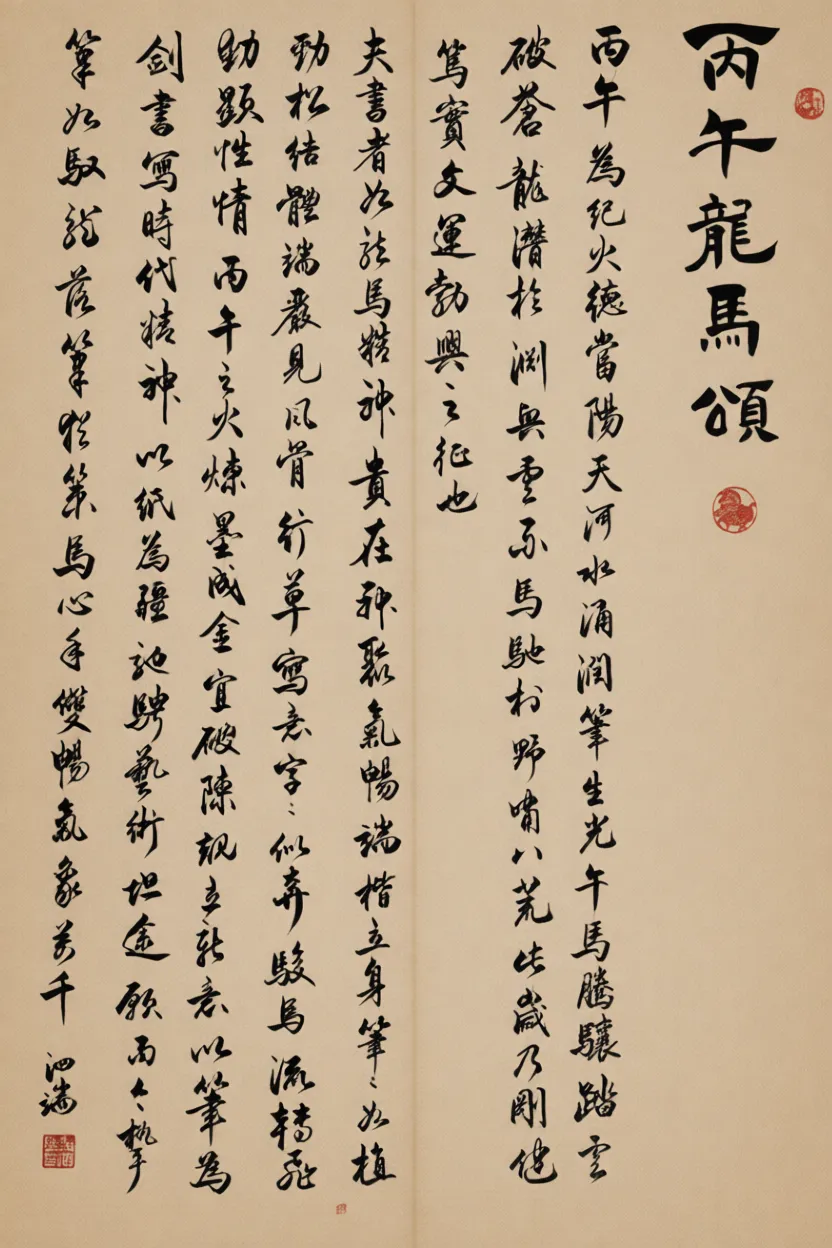 丙午龍馬頌
丙午為紀火德當陽天河水涌潤筆生光午馬騰驤踏雲
破蒼龍潛於淵興雲雨馬馳於野嘯八荒此歲乃剛健
篤實文運勃興之征也
夫書者如龍馬精神貴在神聚氣暢端楷立身筆〻如植
勁松結體端嚴見風骨行草寫意字〻似奔駿馬流轉飛
動顯性情丙午之火煉墨成金宜破陳規立新意以筆為
劍書寫時代精神以紙為疆馳騁藝術坦途願丙午執
筆如馭龍落筆猶策馬心手雙暢氣象萬千
泗端